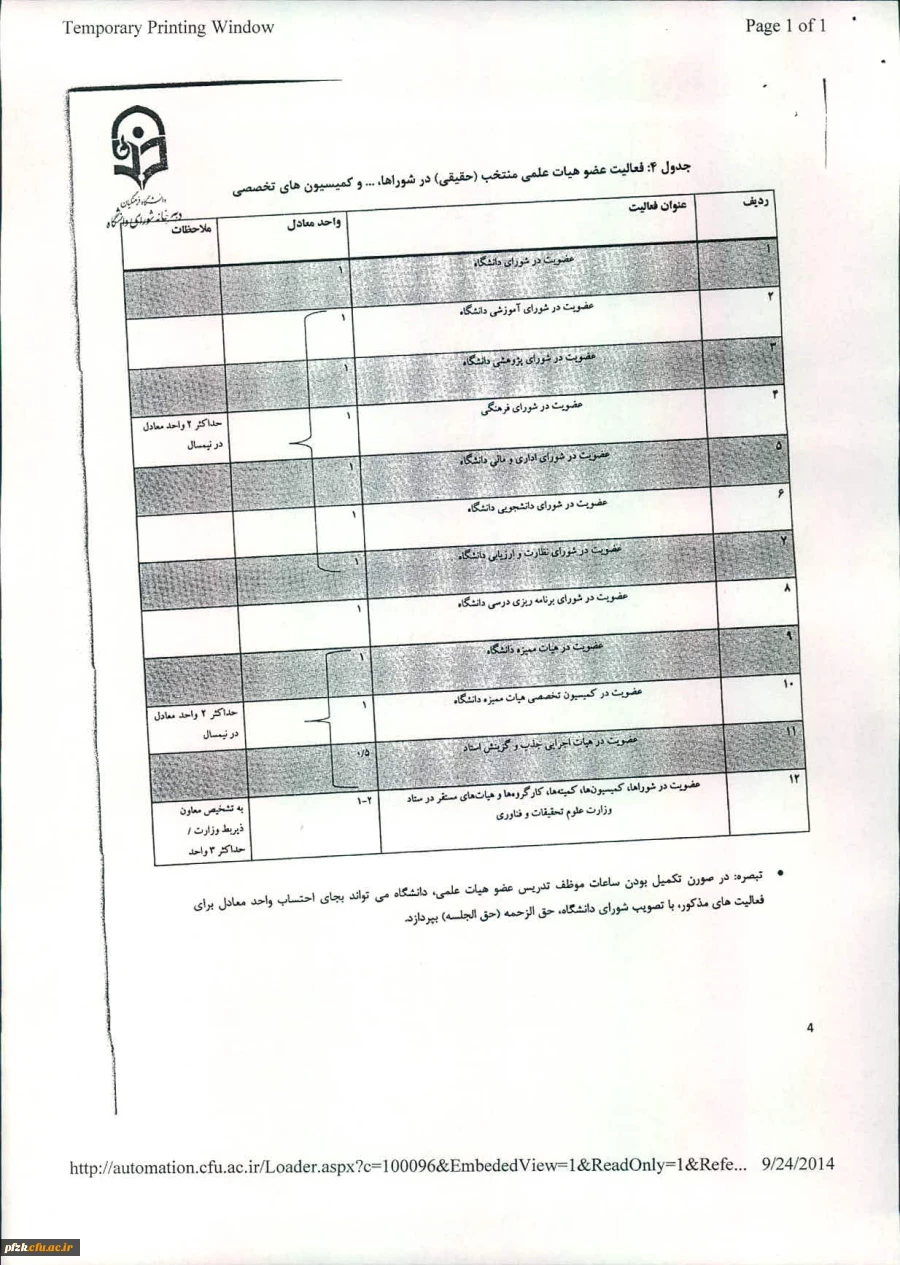 Temporary Printing Window Page 1 of 1
دانشگاه فرهنگیان
دبیرخانه شورای دانشگاه
جدول ۴: فعالیت عضو هیات علمی منتخب (حقیقی) در شوراها، ... و کمیسیون های تخصصی
ردیف عنوان فعالیت واحد معادل ملاحظات
۱ عضویت در شورای دانشگاه ۱
۲ عضویت در شورای آموزشی دانشگاه ۱
۳ عضویت در شورای پژوهشی دانشگاه ۱
۴ عضویت در شورای فرهنگی ۱ حداکثر ۲ واحد معادل
در نیمسال
۵ عضویت در شورای اداری و مالی دانشگاه ۱
۶ عضویت در شورای دانشجویی دانشگاه ۱
۷ عضویت در شورای نظارت و ارزیابی دانشگاه ۱
۸ عضویت در شورای برنامه ریزی درسی دانشگاه ۱
۹ عضویت در هیات ممیزه دانشگاه ۱
۱۰ عضویت در کمیسیون تخصصی هیات ممیزه دانشگاه ۱ حداکثر ۲ واحد معادل
در نیمسال
۱۱ عضویت در هیات اجرایی جذب و گزینش استاد ۰/۵
۱۲ عضویت در شوراها، کمیسیون‌ها، کمیته‌ها، کارگروه‌ها و هیات‌های مستقر در ستاد ۱-۲ به تشخیص معاون
وزارت علوم تحقیقات و فناوری ذیربط وزارت /
حداکثر ۳ واحد
• تبصره: در صورن تکمیل بودن ساعات موظف تدریس عضو هیات علمی، دانشگاه می تواند بجای احتساب واحد معادل برای
فعالیت های مذکور، با تصویب شورای دانشگاه، حق الزحمه (حق الجلسه) بپردازد.
4
http://automation.cfu.ac.ir/Loader.aspx?c=100096&EmbededView=1&ReadOnly=1&Refe... 9/24/2014
pfzk.cfu.ac.ir